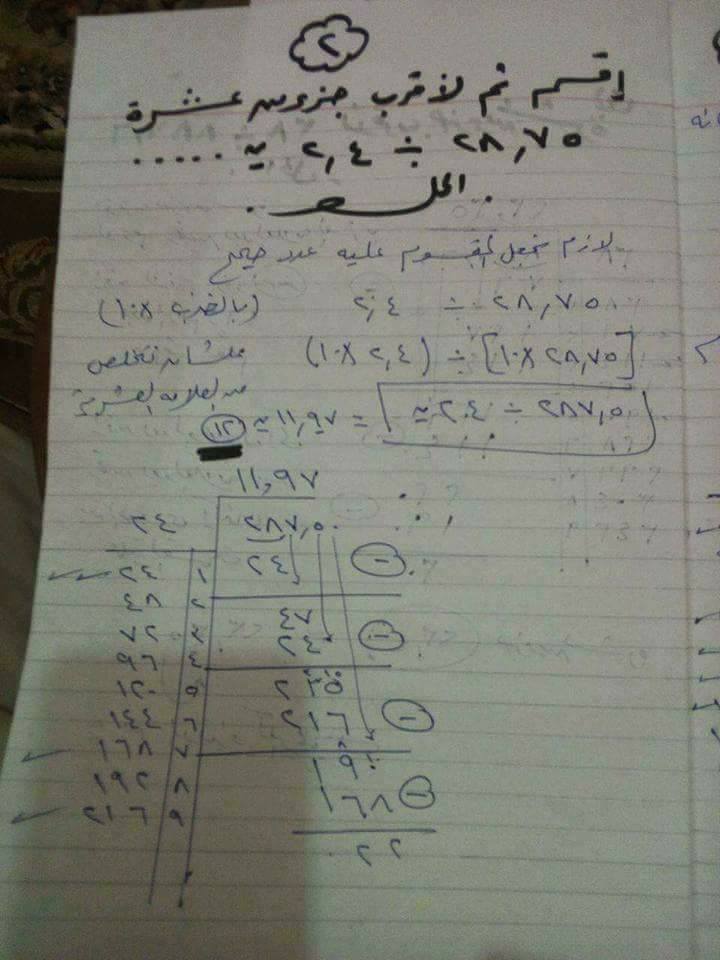 ٢
إقسم ثم لأقرب جزء من عشرة
٢٨,٧٥ ÷ ٢,٤ ≃ .....
الحل
لازم نجعل المقسوم عليه عدد صحيح
٢٨,٧٥ ÷ ٢,٤ (بالضرب ×١٠)
[٢٨,٧٥ ×١٠] ÷ (٢,٤ ×١٠) علشان نتخلص
من العلامه العشرية
٢٨٧,٥ ÷ ٢٤ ≃ = ١١,٩٧ ≃ ١٢
١١,٩٧
٢٨٧,٥٠ ٢٤
٢٤ -
١ ٢٤
٤٧
٢ ٤٨
٢٤ -
٣ ٧٢
٤ ٩٦
٢٣٥
٥ ١٢٠
٢١٦ -
٦ ١٤٤
٧ ١٦٨
١٩٠
٨ ١٩٢
١٦٨ -
٩ ٢١٦
٢٢